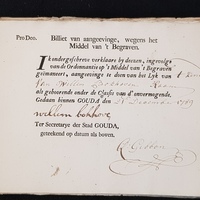 Pro Deo. Billiet van aangeevinge, wegens het
Middel van 't Begraven.
Ik ondergeschreve verklaare by deezen, ingevolge
van de Ordonnantie op 't Middel van 't Begraven
geïmaneert, aangevinge te doen van het Lyk van
van Willem
als gehoorende onder de Classis van d'onvermogende.
Gedaan binnen GOUDA den 28 December 1789
willem
Ter Secretarye der Stad GOUDA,
geteekend op datum als boven.